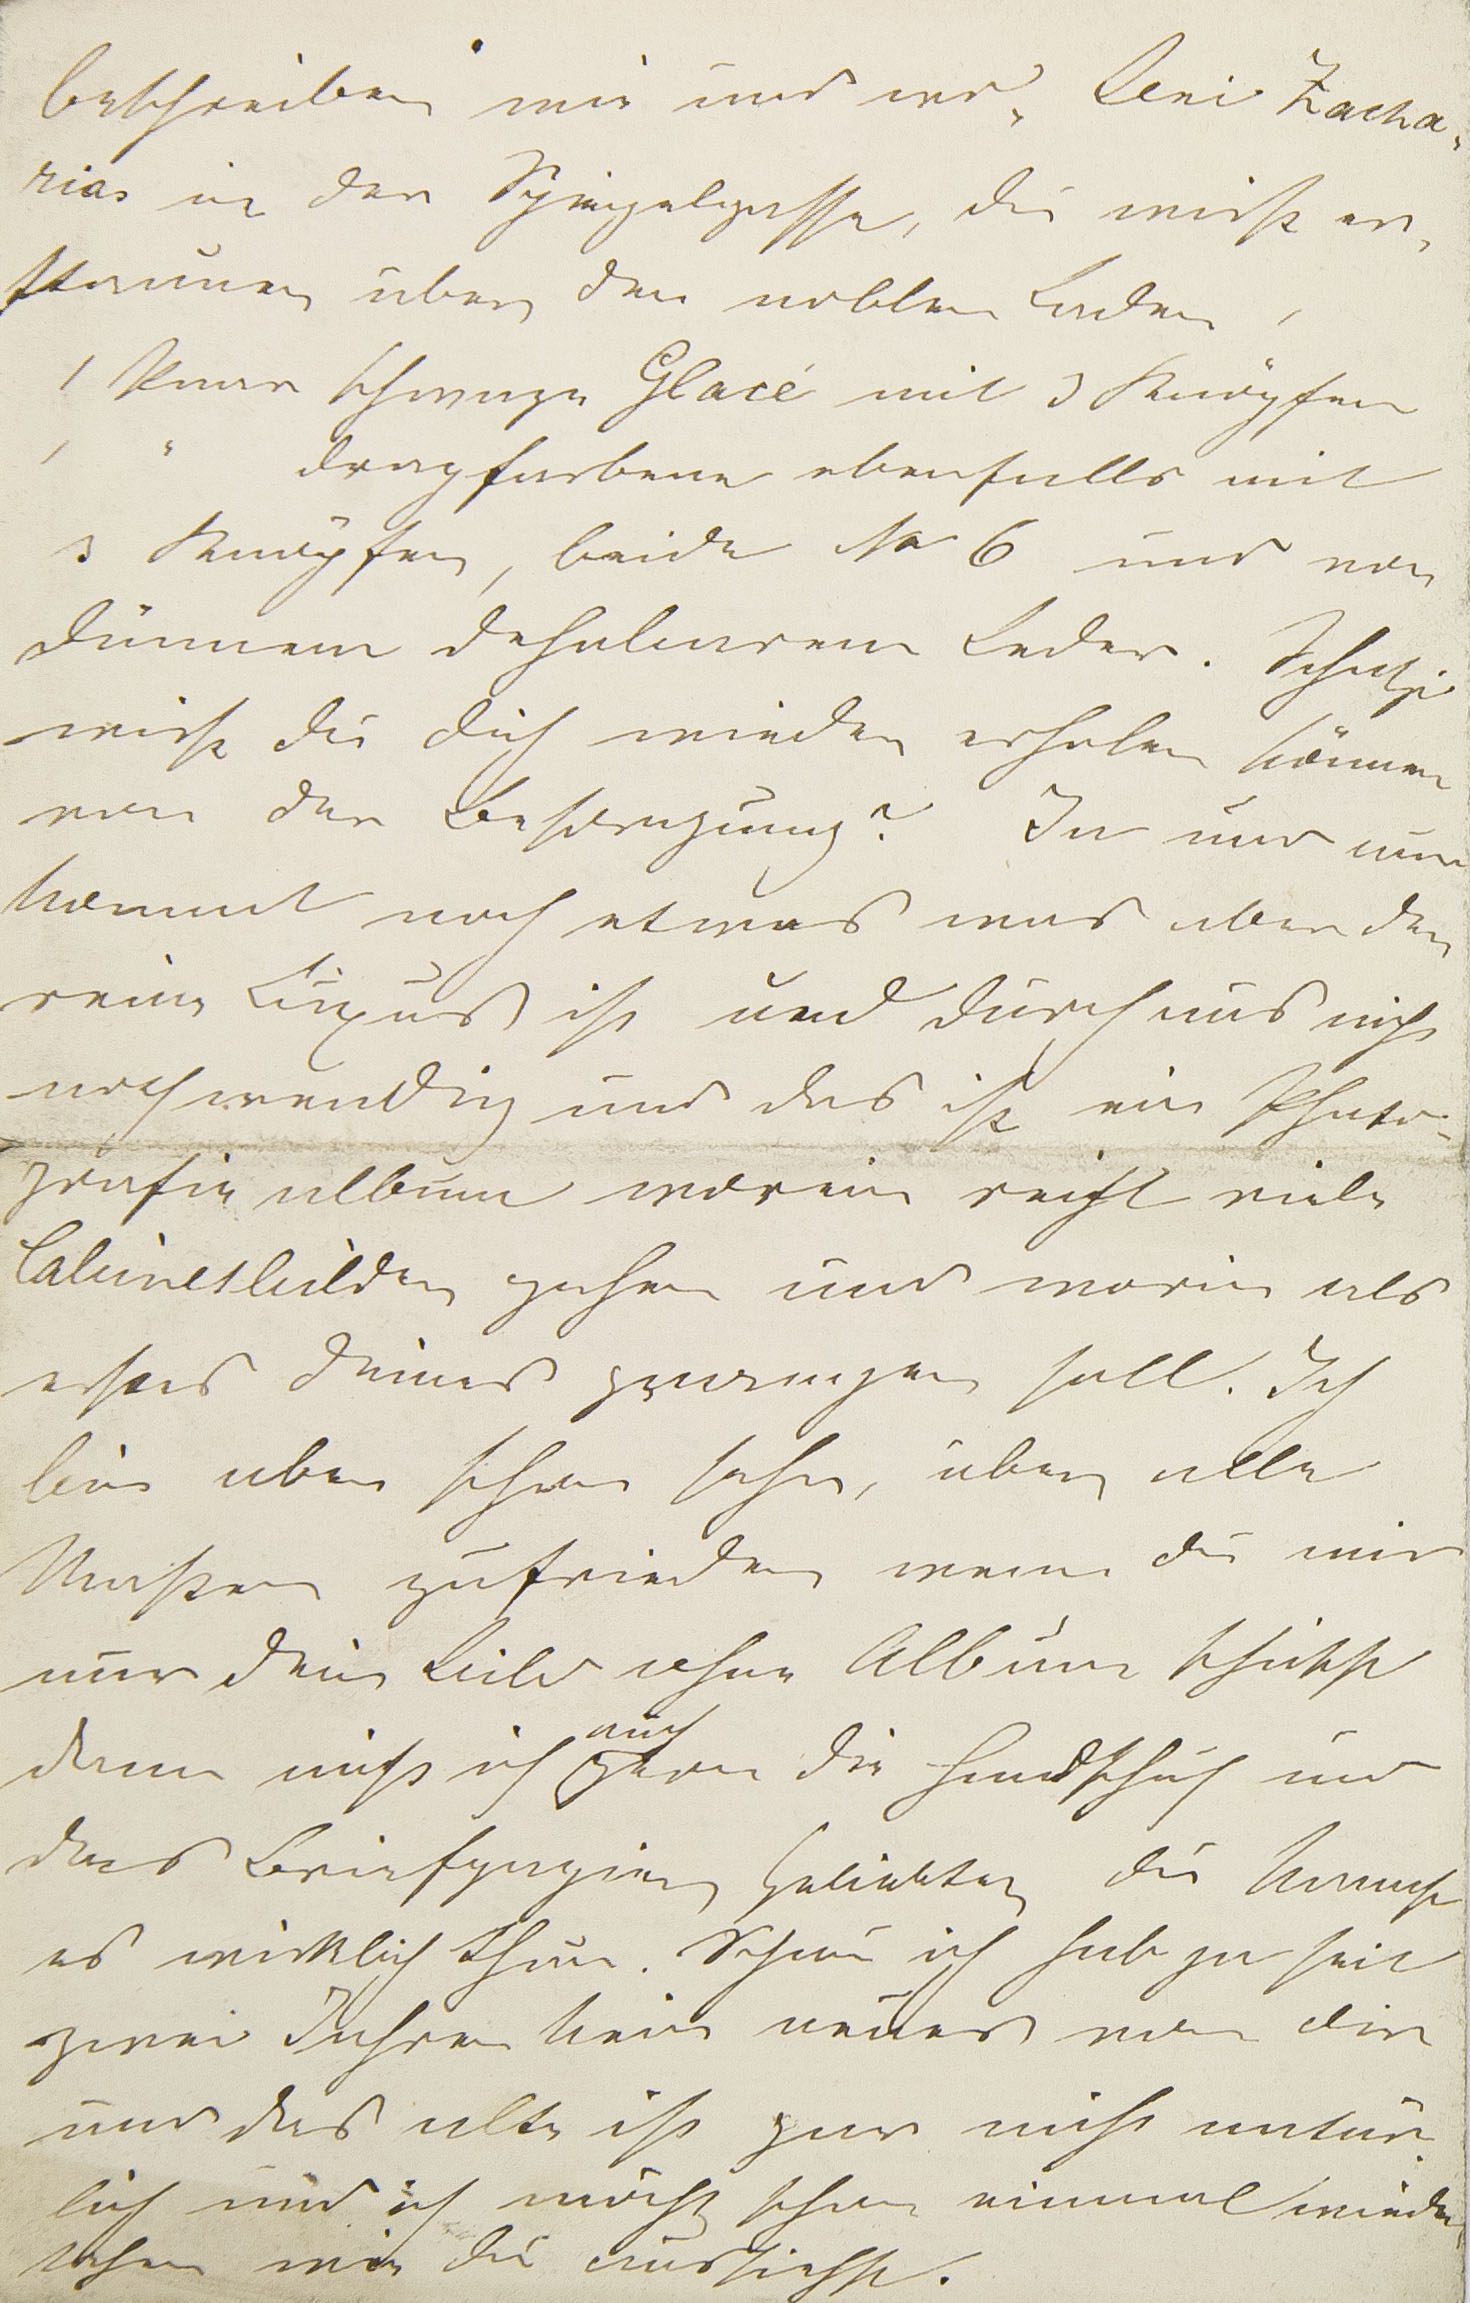 beschreiben wie und wo. Bei Zacha-
rias in der Spiegelgasse, du wirst er-
staunen über den noblen Laden,
1 Paar schwarze Glacé mit 3 Knöpfen
1 " drapfarbene ebenfalls mit
3 Knöpfen, beide No 6 und von
dünnem dehnbarem Leder. Schatzi
wirst du dich wieder erholen können
von der Besorgung? Ja und nun
kommt noch etwas was aber der
reine Luxus ist und durchaus nicht
nothwendig und das ist ein Photo-
grafie album worein recht viele
Cabinetbilder gehen und worin als
erstes deines prangen soll. Ich
bin aber schon sehr, über alle
Massen zufrieden wenn du mir
nur dein Bild ohne Album schickst
dann miss ich auch gern die Handschuh und
das Briefpapier Geliebter du kannst
es wirklich thun. Schau ich hab ja seit
zwei Jahren kein neues von dir
und das alte ist gar nicht natür-
lich und ich möcht schon einmal wieder
sehen wie du aussiehst.